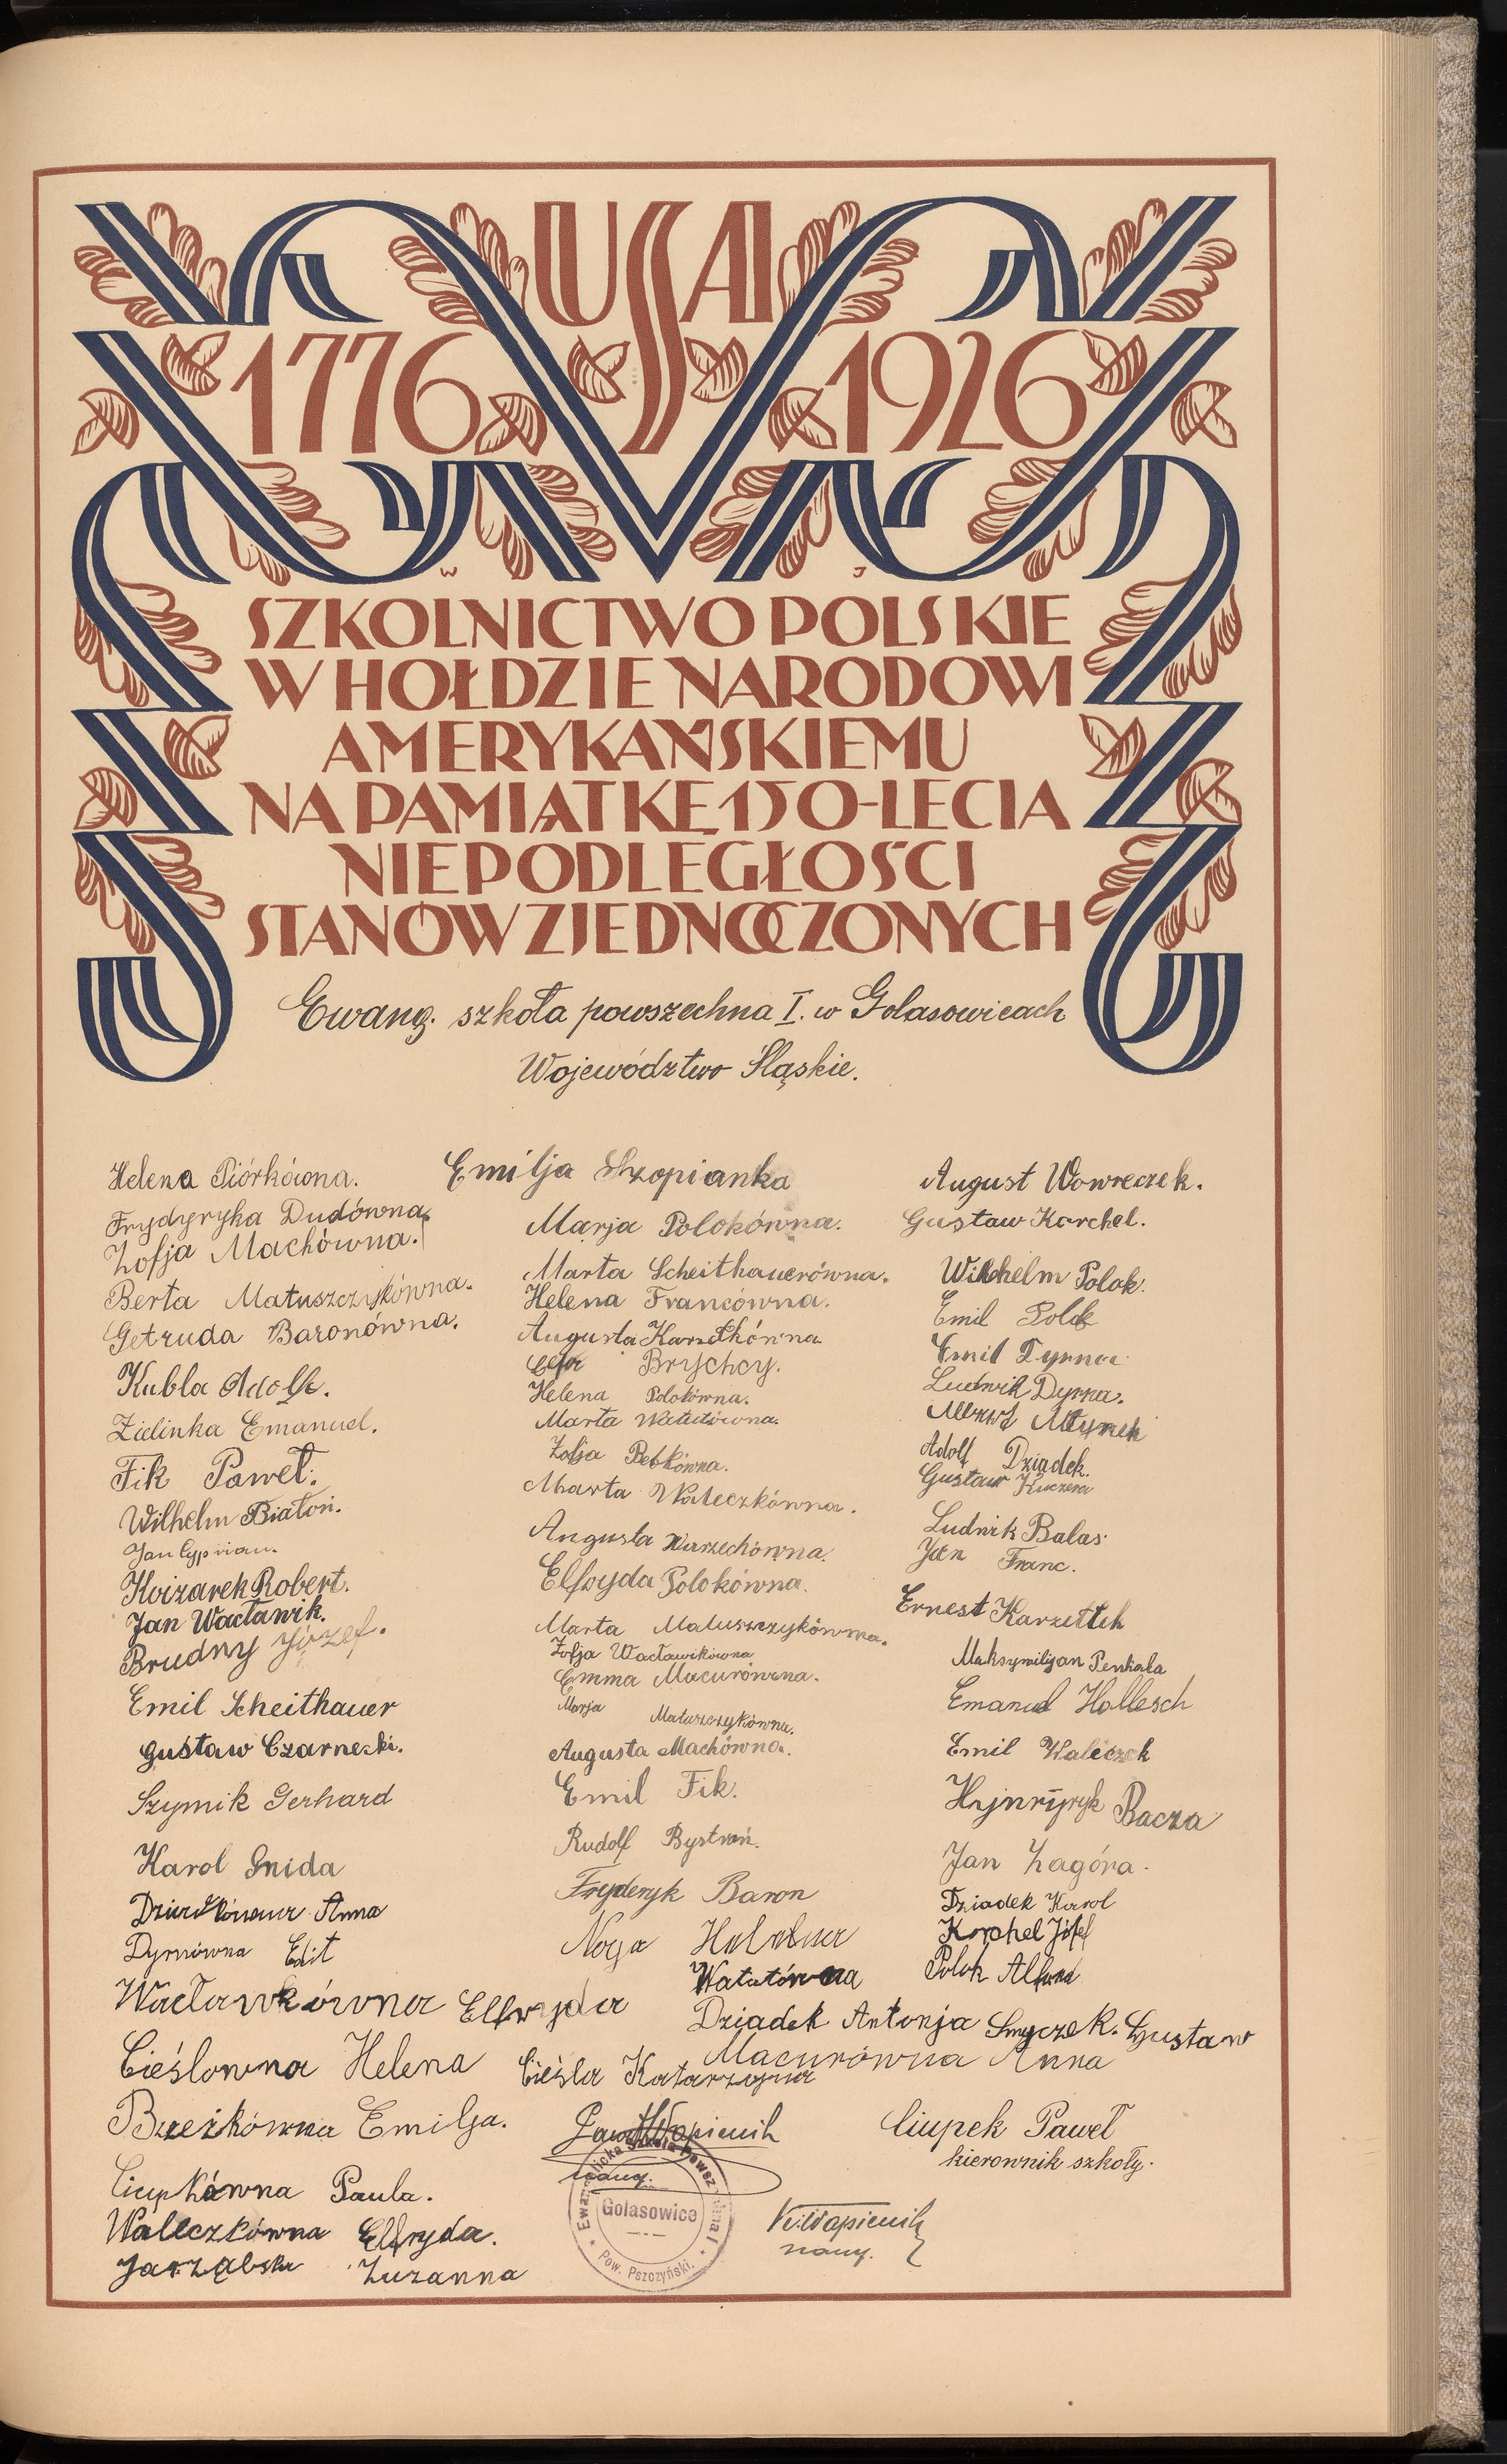 USA
1776 1926
W J
SZKOLNICTWO POLSKIE
W HOŁDZIE NARODOWI
AMERYKAŃSKIEMU
NA PAMIĄTKĘ 150-LECIA
NIEPODLEGŁOŚCI
STANÓW ZJEDNOCZONYCH
Ewang. szkoła powszechna I. w Golasowicach
Województwo Śląskie.
Helena Piórkówna.
Frydyryka Dudówna.
Zofja Machówna.
Berta Matuszczykówna.
Getruda Baronówna.
Kubla Adolf.
Zielinka Emanuel.
Fik Paweł.
Wilhelm Białoń.
Jan Cyprian.
Koizarek Robert.
Jan Wacławik.
Brudny Józef.
Emil Scheithauer
Gustaw Czarnecki.
Szymik Gerhard
Karol Gnida
Anna
Dyrnówna Edit
Wacławikówna Elfryda
Cieślowna Helena
Brzezkówna Emilja.
Ciupkówna Paula.
Waleczkówna Elfryda.
Jarząbska Zuzanna
Emilja Szopianka
Marja Polokówna.
Marta Scheithauerówna.
Helena Francówna.
Augusta Karzethówna
Brychcy.
Helena Polokówna.
Marta Watutówna.
Zofja Bebkówna.
Marta Waleczkówna.
Augusta Warzechówna.
Elfryda Polokówna.
Marta Matuszczykówna.
Zofja Wacławikówna
Emma Macurówna.
Marja Matuszczykówna.
Augusta Machówna.
Emil Fik.
Rudolf Bystroń.
Fryderyk Baron
Noga Helena
Watutówna
Dziadek Antonja
Macurówna Anna
Cieśla Katarzyna
Paweł Wapienik
naucz.
August Wowreczek.
Gustaw Korchel.
Wilhelm Polok.
Emil Polok
Emil Dyrna
Ludwik Dyrna.
Młynek
Adolf Dziadek.
Gustaw Kuczera
Ludwik Balas
Jan Franc.
Ernest Karzettek
Maksymiljan Penkala
Emanuel Hollesch
Emil Waleczek
Hajnrych Bacza
Jan Zagóra.
Dziadek Karol
Korchel Józef
Polok Alfred
Smyczek. Gustaw
Ciupek Paweł
kierownik szkoły.
K. Wapienik
naucz.
Ewangelicka Szkoła Powszechna I
Golasowice
Pow. Pszczyński.